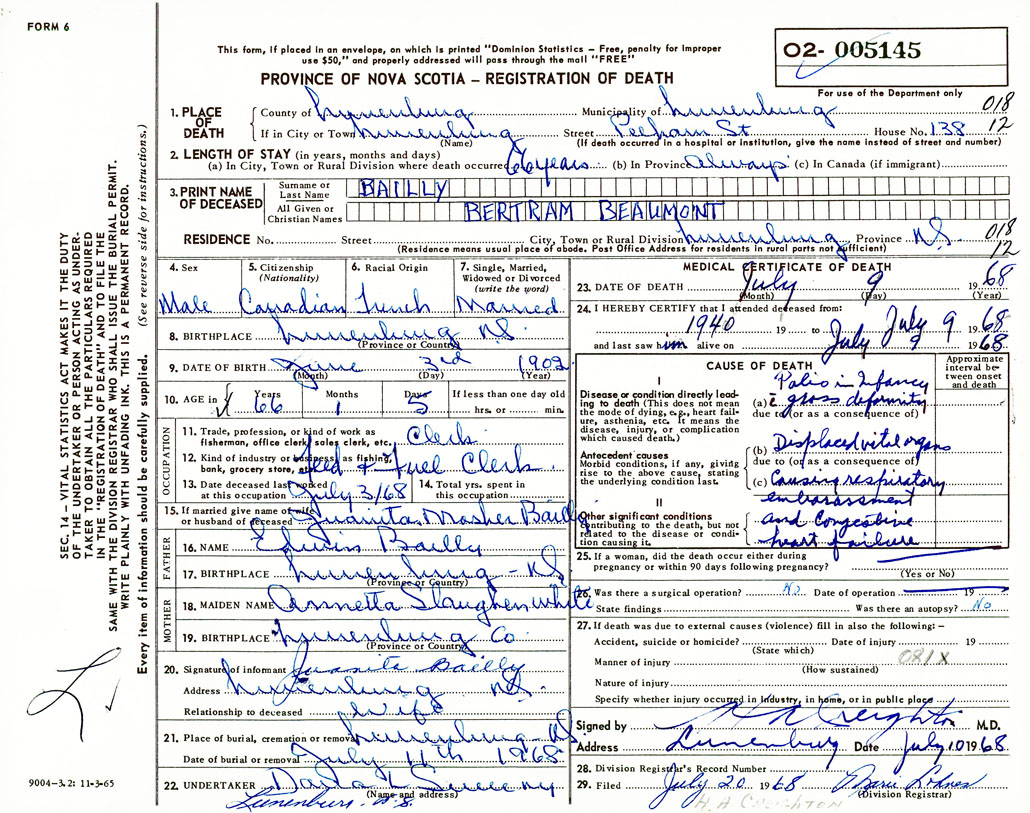 FORM 6
This form, if placed in an envelope, on which is printed "Dominion Statistics – Free, penalty for improper
use $50," and properly addressed will pass through the mail "FREE"
PROVINCE OF NOVA SCOTIA – REGISTRATION OF DEATH
02- 005145
For use of the Department only
018
12
1. PLACE OF DEATH
County of Lunenburg Municipality of Lunenburg
If in City or Town Lunenburg Street Pelham St House No. 138
(Name) (If death occurred in a hospital or institution, give the name instead of street and number)
2. LENGTH OF STAY (in years, months and days)
(a) In City, Town or Rural Division where death occurred 66 years (b) In Province Always (c) In Canada (if immigrant)
3. PRINT NAME OF DECEASED
Surname or Last Name BAILLY
All Given or Christian Names BERTRAM BEAUMONT
RESIDENCE No. Street City, Town or Rural Division Lunenburg Province N.S. 018
12
(Residence means usual place of abode. Post Office Address for residents in rural parts not sufficient)
4. Sex
Male
5. Citizenship
(Nationality)
Canadian
6. Racial Origin
French
7. Single, Married,
Widowed or Divorced
(write the word)
Married
8. BIRTHPLACE Lunenburg N.S.
(Province or Country)
9. DATE OF BIRTH June 3rd 1902
(Month) (Day) (Year)
10. AGE in Years Months Days If less than one day old
66 1 5 hrs. or min.
OCCUPATION
11. Trade, profession, or kind of work as Clerk
fisherman, office clerk, sales clerk, etc.
12. Kind of industry or business as fishing,
bank, grocery store, etc. Feed & Fuel Clerk
13. Date deceased last worked
at this occupation July 3/68
14. Total yrs. spent in
this occupation
15. If married give name of wife
or husband of deceased Juanita Mosher Bailly
FATHER
16. NAME Edwin Bailly
17. BIRTHPLACE Lunenburg - NS
(Province or Country)
MOTHER
18. MAIDEN NAME Annetta Slaughenwhite
19. BIRTHPLACE Lunenburg Co.
(Province or Country)
20. Signature of informant Juanita Bailly
Address Lunenburg N.S.
Relationship to deceased Wife
21. Place of burial, cremation or removal Lunenburg - NS
Date of burial or removal July 11th 1968
22. UNDERTAKER Sweeny
(Name and address)
Lunenburg. N.S.
MEDICAL CERTIFICATE OF DEATH
23. DATE OF DEATH July 9 1968
(Month) (Day) (Year)
24. I HEREBY CERTIFY that I attended deceased from:
1940 19 to July 9 1968
and last saw him alive on July 9 1968
CAUSE OF DEATH
Approximate interval between onset and death
I
Disease or condition directly leading to death (This does not mean
the mode of dying, e.g., heart failure, asthenia, etc. It means the
disease, injury, or complication
which caused death.)
Polio in Infancy
(a) c̄ gross deformity
due to (or as a consequence of)
Antecedent causes
Morbid conditions, if any, giving
rise to the above cause, stating
the underlying condition last.
(b) Displaced vital organs
due to (or as a consequence of)
(c) Causing respiratory
embarassment
II
Other significant conditions
contributing to the death, but not
related to the disease or condition causing it.
and Congestive
heart failure
25. If a woman, did the death occur either during
pregnancy or within 90 days following pregnancy?
(Yes or No)
26. Was there a surgical operation? No Date of operation 19
State findings Was there an autopsy? No
27. If death was due to external causes (violence) fill in also the following: –
Accident, suicide or homicide? Date of injury 19
(State which)
081X
Manner of injury
(How sustained)
Nature of injury
Specify whether injury occurred in industry, in home, or in public place
Signed by Creighton M.D.
Address Lunenburg Date July 10 1968
28. Division Registrar's Record Number
29. Filed July 20 1968
(Division Registrar)
H A CREIGHTON
SEC. 14 – VITAL STATISTICS ACT MAKES IT THE DUTY
OF THE UNDERTAKER OR PERSON ACTING AS UNDER-
TAKER TO OBTAIN ALL THE PARTICULARS REQUIRED
IN THE "REGISTRATION OF DEATH" AND TO FILE THE
SAME WITH THE DIVISION REGISTRAR WHO SHALL ISSUE THE BURIAL PERMIT.
WRITE PLAINLY WITH UNFADING INK. THIS IS A PERMANENT RECORD.
Every item of information should be carefully supplied. (See reverse side for instructions.)
9004-3.2: 11-3-65